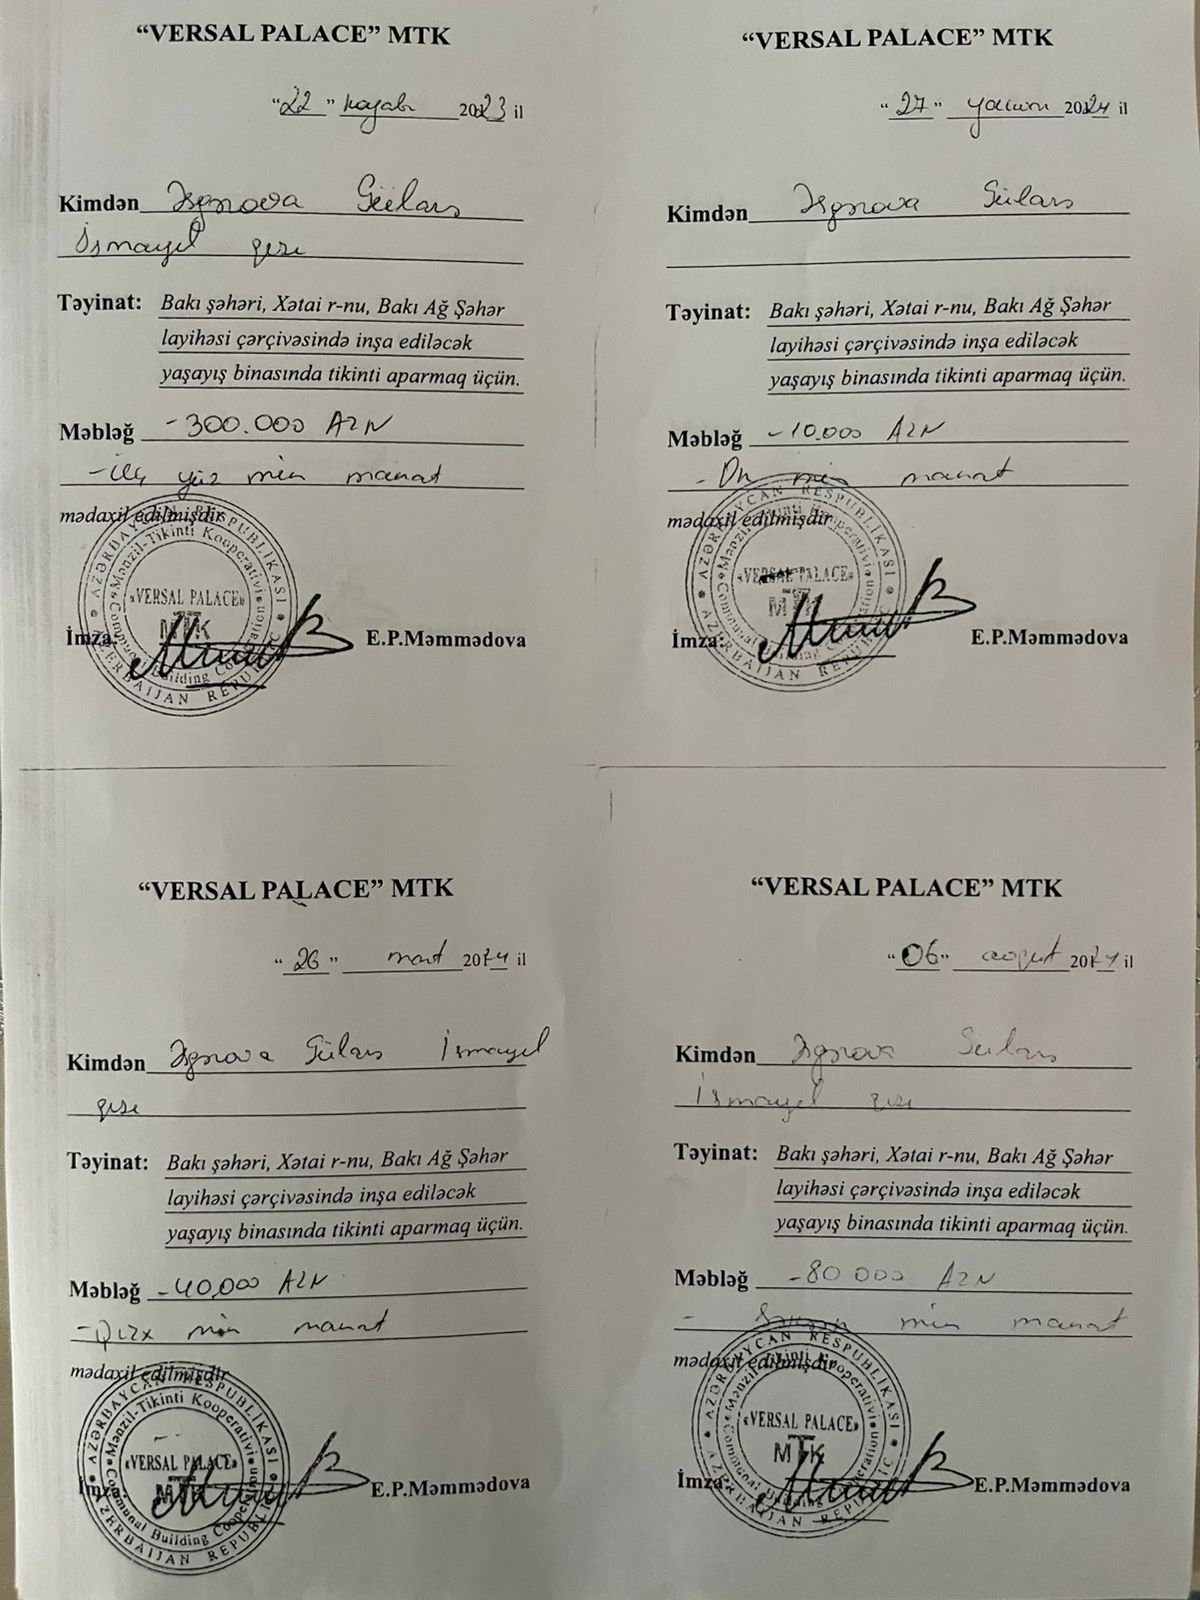 “VERSAL PALACE” MTK
“22” noyabr 2023 il
Kimdən Əsgərova Gülarə
İsmayıl qızı
Təyinat: Bakı şəhəri, Xətai r-nu, Bakı Ağ Şəhər
layihəsi çərçivəsində inşa ediləcək
yaşayış binasında tikinti aparmaq üçün.
Məbləğ -300.000 AZN
-üç yüz min manat
mədaxil edilmişdir
AZƏRBAYCAN RESPUBLİKASI
Mənzil-Tikinti Kooperativi
«VERSAL PALACE»
MTK
Communal Building Cooperation
AZERBAIJAN REPUBLIC
İmza: E.P.Məmmədova
“VERSAL PALACE” MTK
“27” 2024 il
Kimdən Əsgərova Gülarə
Təyinat: Bakı şəhəri, Xətai r-nu, Bakı Ağ Şəhər
layihəsi çərçivəsində inşa ediləcək
yaşayış binasında tikinti aparmaq üçün.
Məbləğ -10.000 AZN
-On min manat
mədaxil edilmişdir
AZƏRBAYCAN RESPUBLİKASI
Mənzil-Tikinti Kooperativi
«VERSAL PALACE»
MTK
Communal Building Cooperation
AZERBAIJAN REPUBLIC
İmza: E.P.Məmmədova
“VERSAL PALACE” MTK
“26” mart 2024 il
Kimdən Əsgərova Gülarə İsmayıl
qızı
Təyinat: Bakı şəhəri, Xətai r-nu, Bakı Ağ Şəhər
layihəsi çərçivəsində inşa ediləcək
yaşayış binasında tikinti aparmaq üçün.
Məbləğ -40,000 AZN
-Qırx min manat
mədaxil edilmişdir
AZƏRBAYCAN RESPUBLİKASI
Mənzil-Tikinti Kooperativi
«VERSAL PALACE»
MTK
Communal Building Cooperation
AZERBAIJAN REPUBLIC
İmza: E.P.Məmmədova
“VERSAL PALACE” MTK
“06” avqust 2024 il
Kimdən Əsgərova Gülarə
İsmayıl qızı
Təyinat: Bakı şəhəri, Xətai r-nu, Bakı Ağ Şəhər
layihəsi çərçivəsində inşa ediləcək
yaşayış binasında tikinti aparmaq üçün.
Məbləğ -80 000 AZN
- Səksən min manat
mədaxil edilmişdir
AZƏRBAYCAN RESPUBLİKASI
Mənzil-Tikinti Kooperativi
«VERSAL PALACE»
MTK
Communal Building Cooperation
AZERBAIJAN REPUBLIC
İmza: E.P.Məmmədova